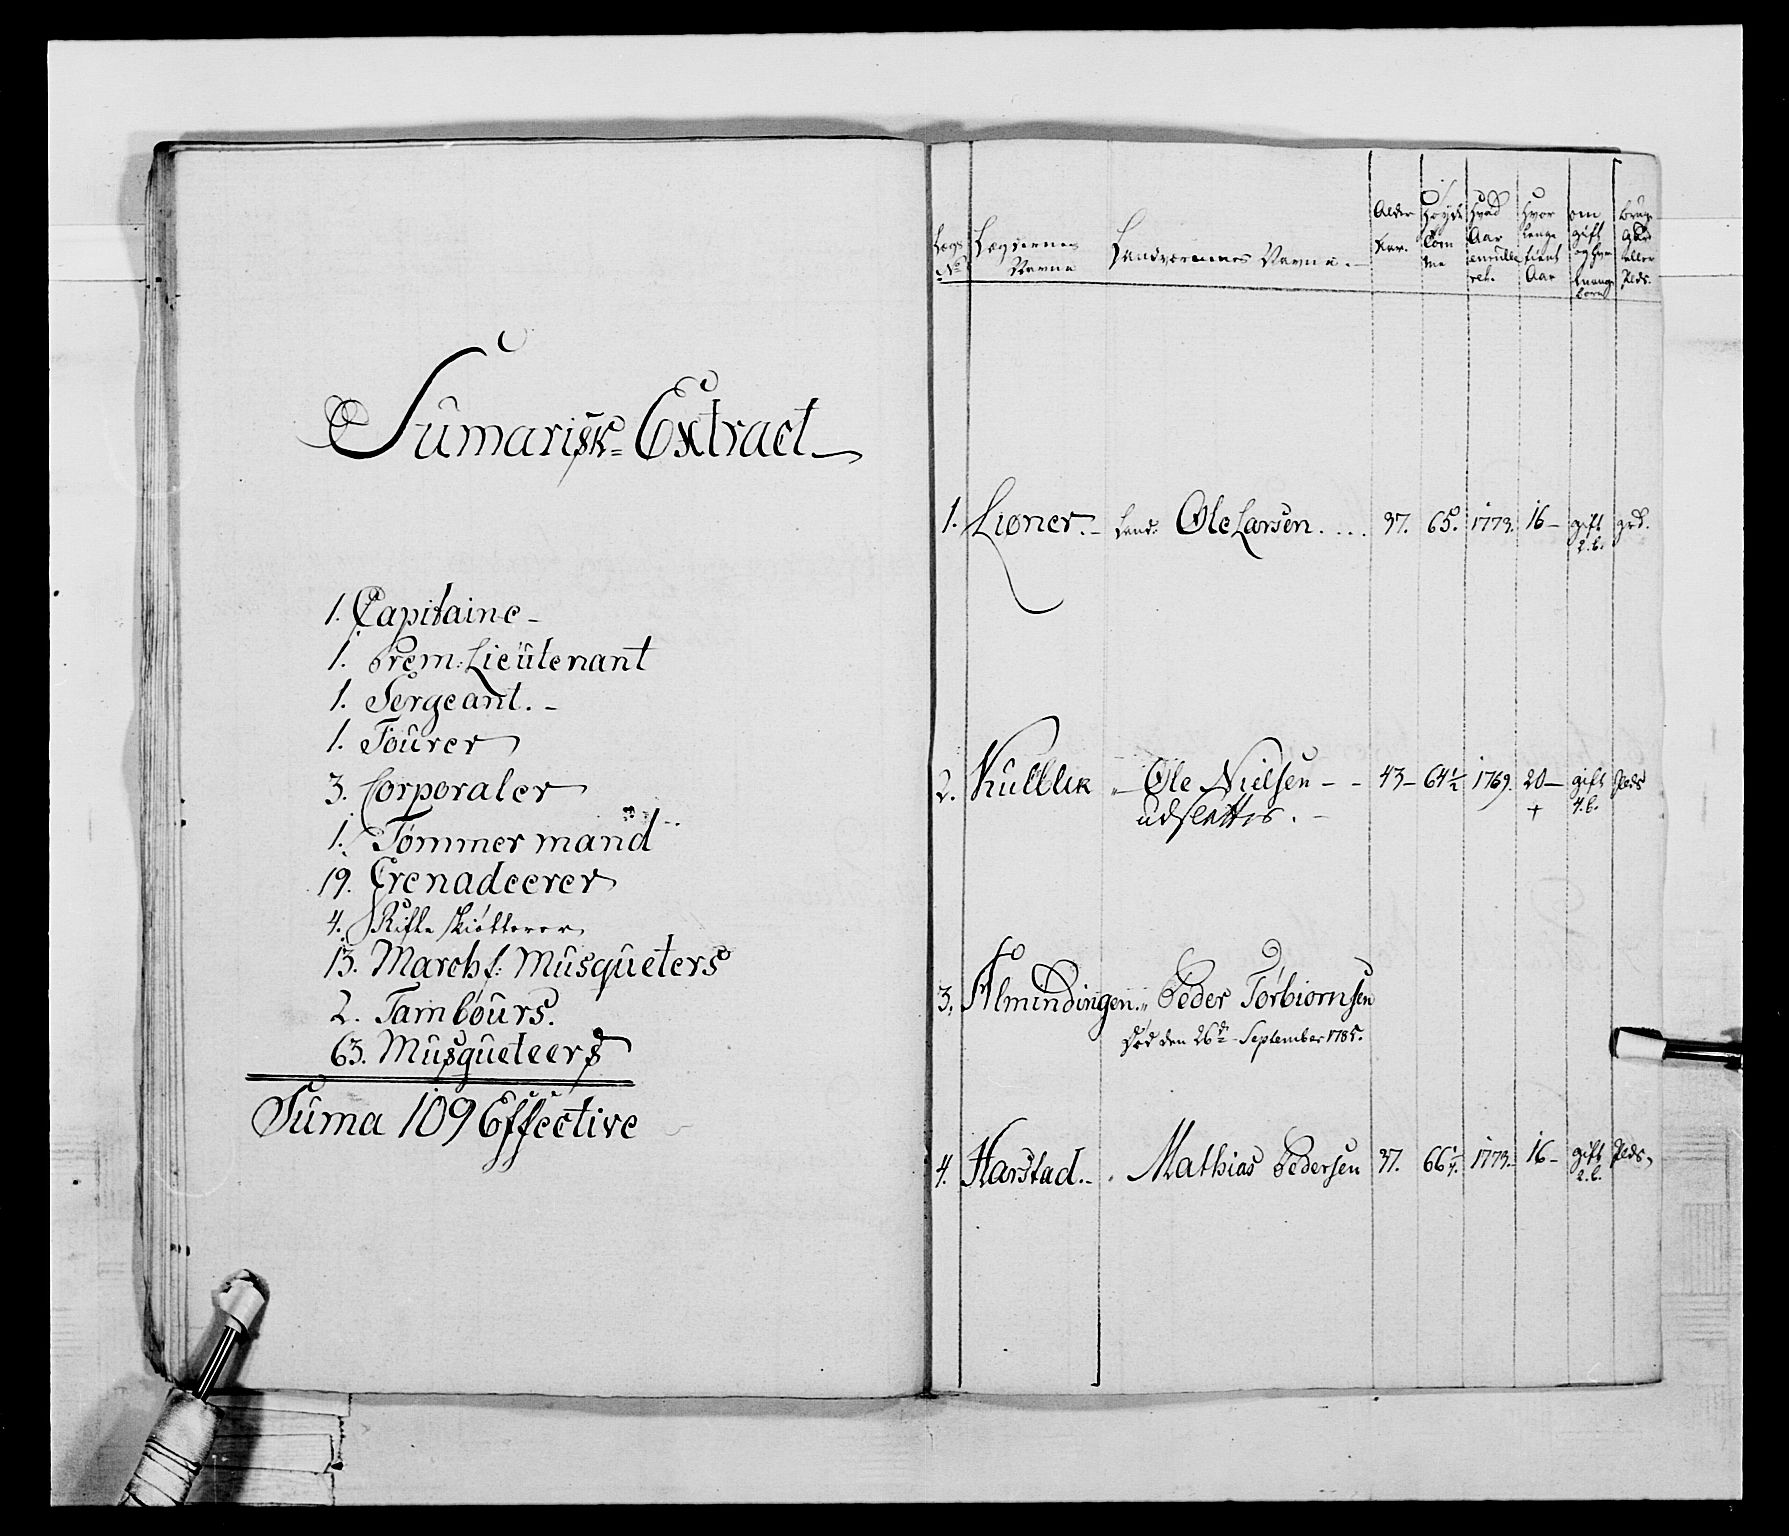 Sumarisk = Extract
1. Capitaine
1. Prem: Lieutenant
1. Sergeant.
1. Fourer
3. Corporaler
1. Tømmermand
19. Grenadeerer
4. Rifle skiøtterer
13. March f: Musqueters
2. Tambours.
63. Musqueteers
Suma 109 Effective
Lægs No Lægdernes Navne Landværnernes Navne. Alder Aar. Høyde Tom me Hvad Aar enrulle ret. Hvor lenge tient Aar om gift og hvor mange born brug grd eller Plds.
1. Lioner. Land. Ole Larsen. 37. 65. 1773. 16 gift 2. b. grd.
2. Kulblik „ Ole Nielsen 43 64½ 1769. 20 gift 4. b. Plds
udslættes. +
3. Almindingen. „ Peder Torbiornsen
død den 26de September 1785.
4. Harstad. „ Mathias Pedersen 37. 66¼. 1773. 16 gift 2. b. Plds,